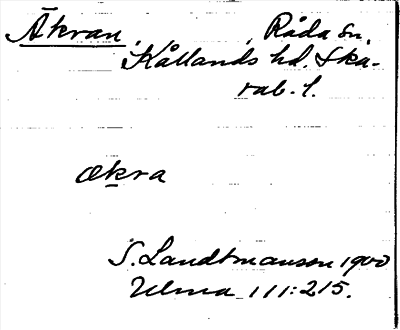 Äkran, , , Råda sn,
Kållands hd. Ska-
rab. l.
ækra
S. Landtmanson 1900
Ulma 111:215.